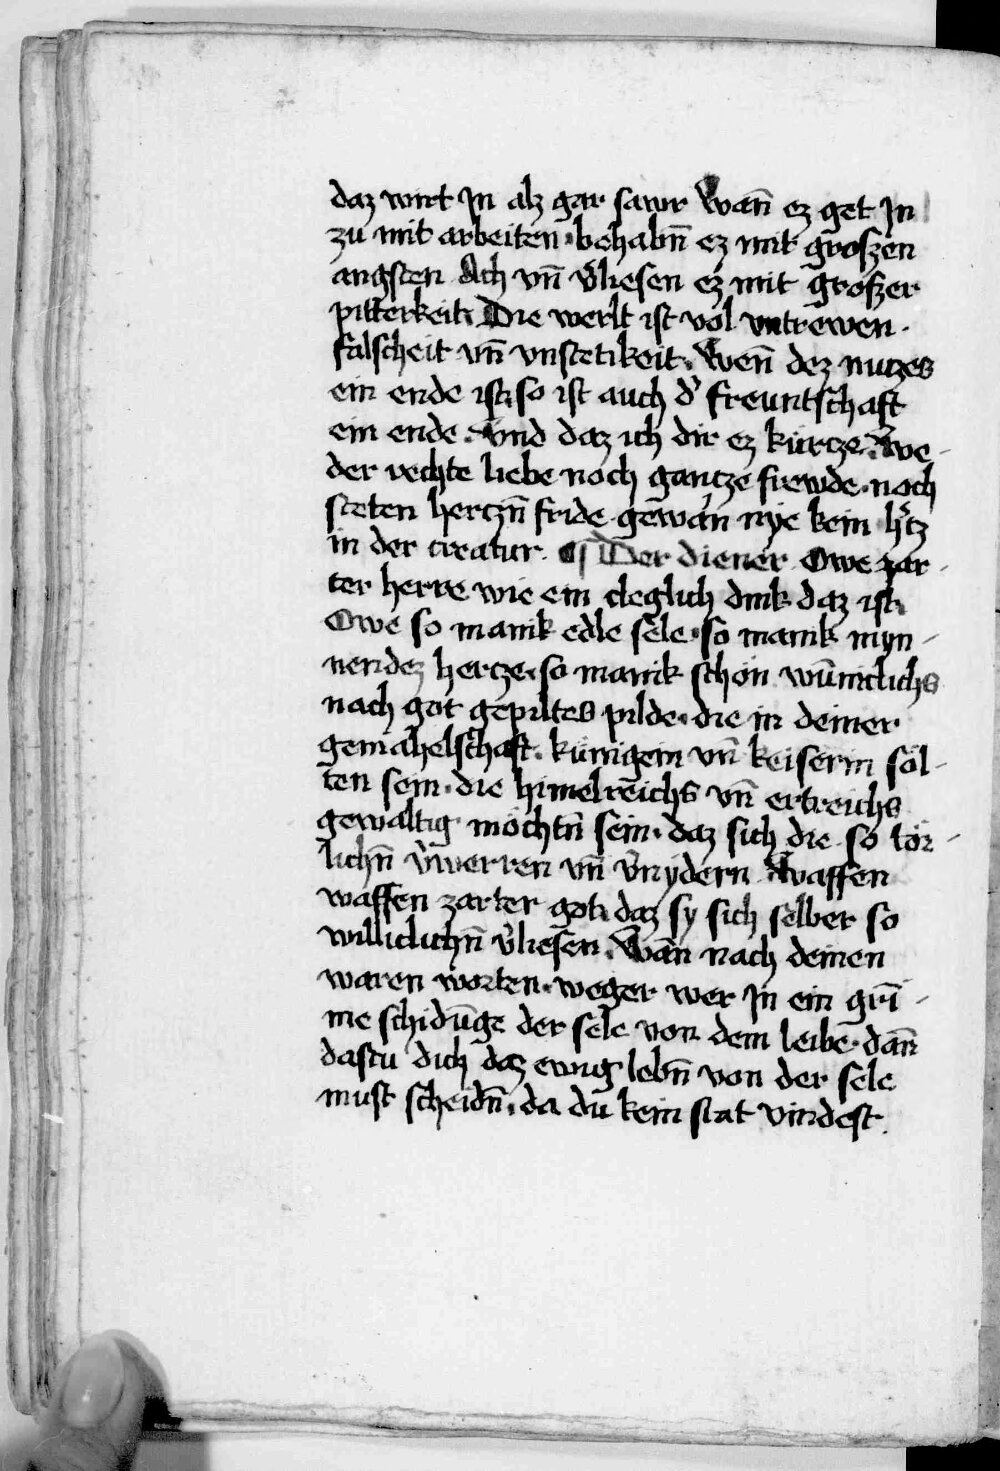 daz wirt Jn alz gar sawr Wañ ez get Jn
zu mit arbeiten · behabñ ez mit groszen
angsten Ach vñ v̉liesen ez mit groszer
pitterkeit. Die werlt ist vol vntrewen ·
falscheit vñ vnstetikeit. Weñ dez nutzes
ein ende ist. so ist auch d̉ freuntschaft
ein ende. Vnd daz ich dir ez kürtze. We-
der rechte liebe noch gantze frewde · noch
steten hertzñ fride gewan nye kein h̉tz
in der creatur. ¶ Der diener Owe zar-
ter herre wie ein cleglich dink daz ist.
Owe so manik edle sele · so manik myn-
nendez hertze. so manik schön wūniclichs
nach got gepiltes pilde · die in deiner
gemahelschaft. künigein vñ keiserin söl-
ten sein · die himelreichs vñ ertreichs
gewaltig möchtñ sein. daz sich die so tör-
lichñ v̉werren vñ v̉nydern Waffen
waffen zarter got. daz sy sich selber so
williclichñ v̉liesen. Wan nach deinen
waren worten. weger wer Jn ein gri-
me schidūge der sele von dem leibe · dañ
dastu dich daz ewig lebñ von der sele
must scheidñ. da du kein stat vindest.